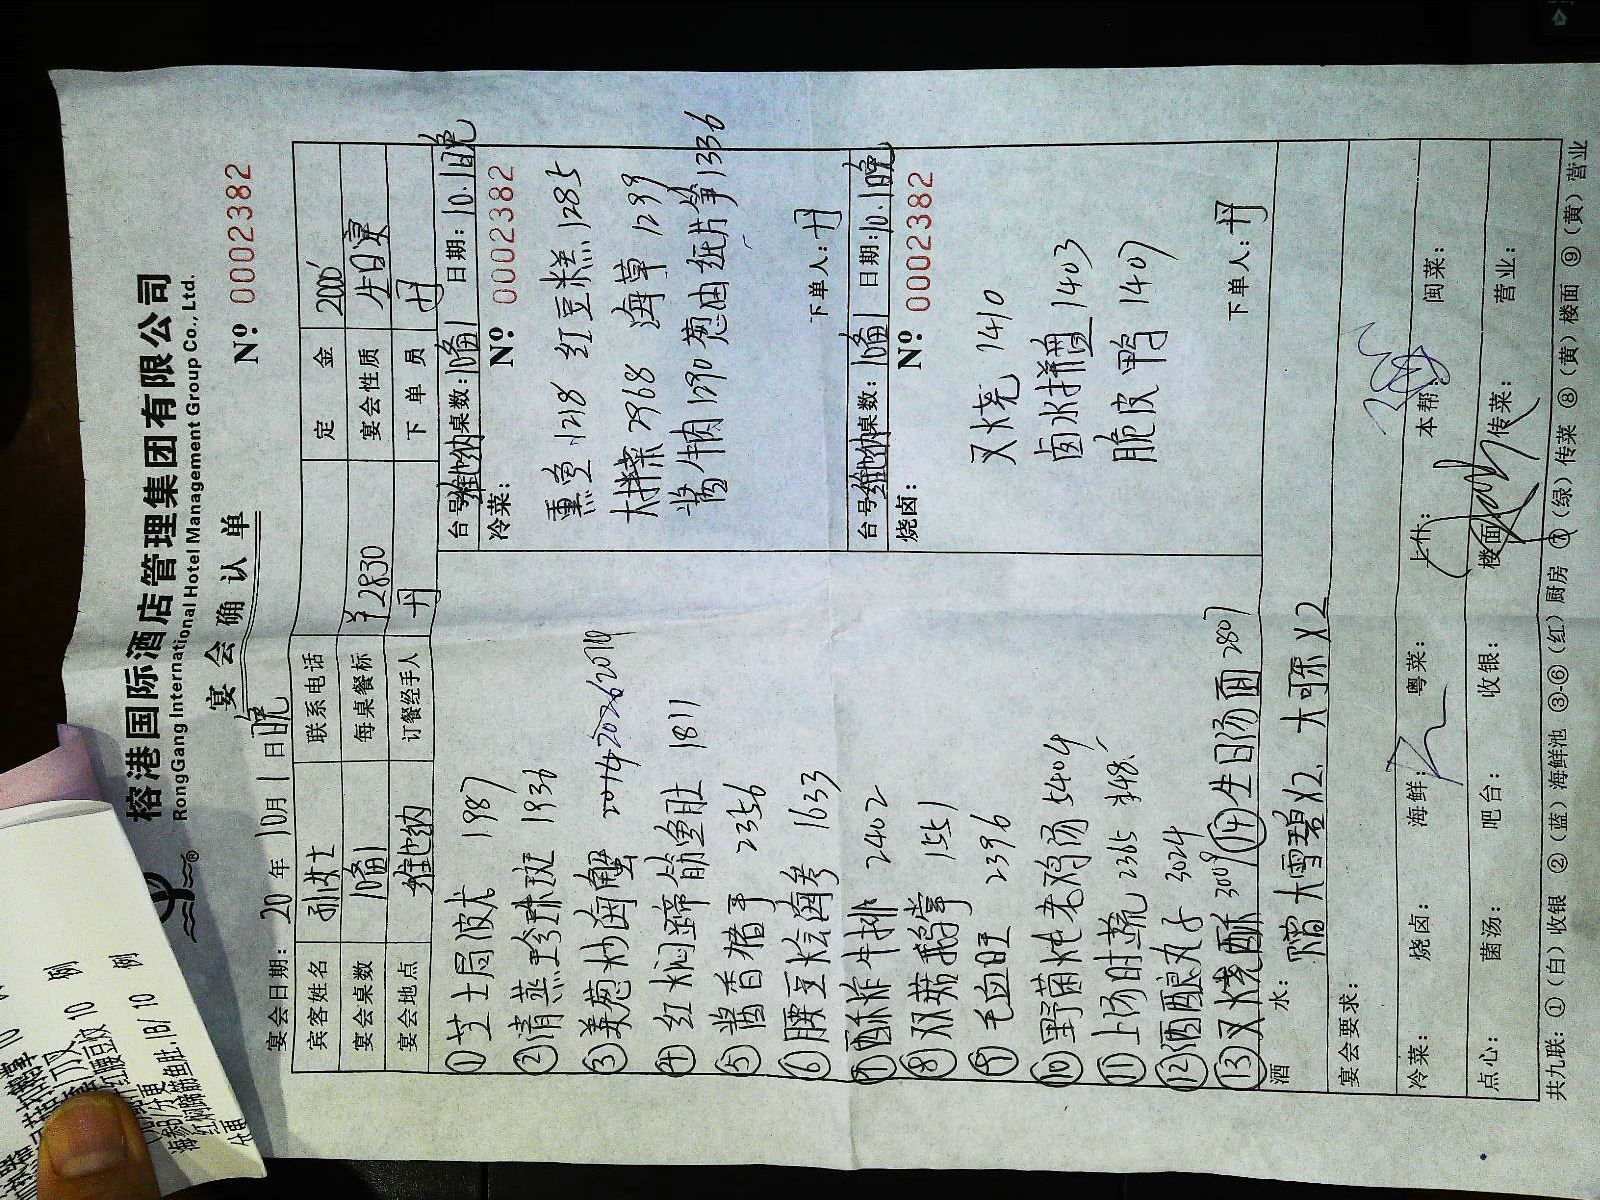 榕港国际酒店管理集团有限公司
RongGang International Hotel Management Group Co., Ltd.
宴会确认单
Nº 0002382
宴会日期: 20 年 10月 1 日晚
宾客姓名 孙女士 联系电话 定金 2000
宴会桌数 10备1 每桌餐标 ¥2830 宴会性质 生日宴
宴会地点 维也纳 订餐经手人 丹 下单员 丹
① 芝士局波龙 1987
② 清蒸珍珠斑 1936
③ 姜葱炒海蟹
④ 红焖蹄筋鱼肚 1811
⑤ 酱香猪手 2356
⑥ 腰豆烩海参 1633
⑦ 酥炸牛排 2402
⑧ 双菇鹅掌 1551
⑨ 毛血旺 2396
⑩ 野菌炖老鸡汤 5404
⑪ 上汤时蔬 2365
⑫ 酒酿丸子 3024
⑬ 叉烧酥 3009 ⑭ 生日汤面 2807
台号: 维也纳 桌数: 10备1 日期: 10.1晚
冷菜: Nº 0002382
熏鱼 1218 红豆糕 1285
大拌菜 2968 海草 1299
酱牛肉 1290 葱油纸片笋 1336
下单人: 丹
台号: 维也纳 桌数: 10备1 日期: 10.1晚
烧卤: Nº 0002382
叉烧 1410
卤水拼盘 1403
脆皮鸭 1407
下单人: 丹
酒水: 大雪碧X2, 大可乐X2
宴会要求:
冷菜: 烧卤: 海鲜: 粤菜: 上什: 本帮: 闽菜:
点心: 菌汤: 吧台: 收银: 楼面: 传菜: 营业:
共九联: ①(白)收银 ②(蓝)海鲜池 ③-⑥(红)厨房 ⑦(绿)传菜 ⑧(黄)楼面 ⑨(黄)营业